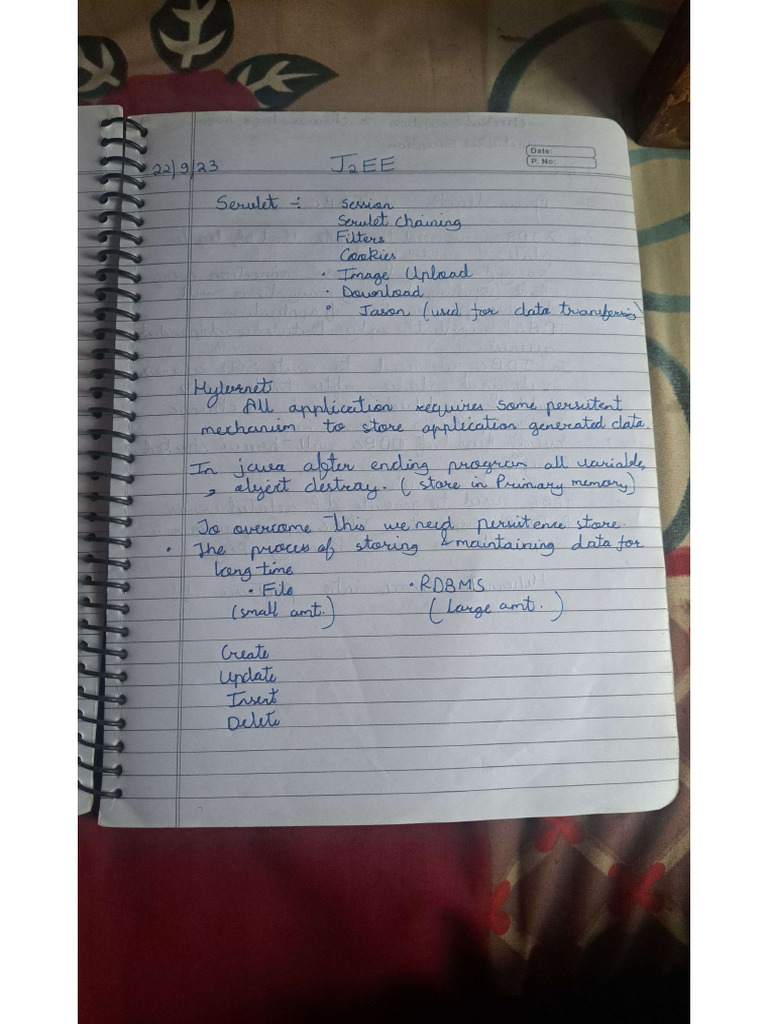 Date:
P. No:
22/9/23
J2EE
Servlet :- Session
Servlet Chaining
Filters
Cookies
• Image Upload
• Download
• Jason (used for data transferring)
Hybernet
All application requires some persistent
mechanism to store application generated data.
In java after ending program all variable
, object destroy. (store in Primary memory)
To overcome this we need persitence store.
• The process of storing & maintaining data for
long time
• File • RDBMS
(small amt.) (large amt.)
Create
Update
Insert
Delete